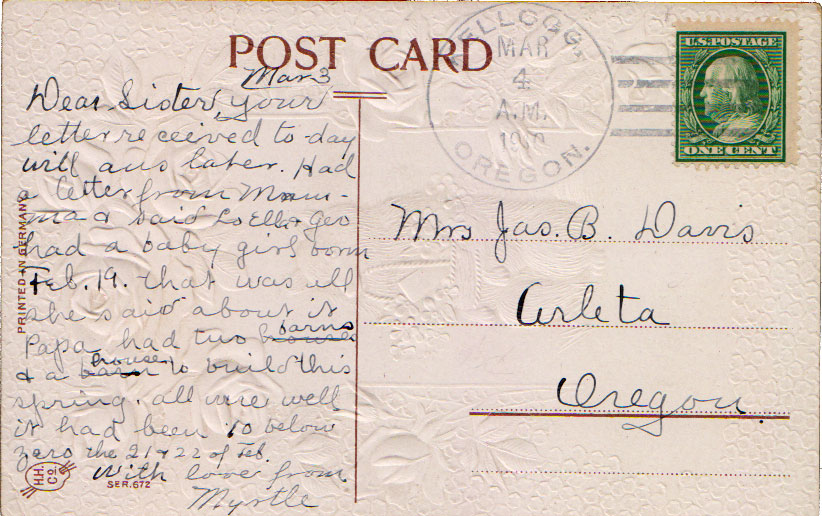 POST CARD
KELLOGG,
MAR
4
A.M.
OREGON.
U.S. POSTAGE
ONE CENT
Mar 3
Dear Sister, your
letter received to-day
will ans later. Had
a letter from Mam-
ma & said Loell & Geo
had a baby girl born
Feb. 19. that was all
she said about it
Papa had two barns
& a house to build this
spring. all were well
it had been 10 below
zero the 21 & 22 of Feb.
With love from
Myrtle
Mrs Jas. B. Davis
Arleta
Oregon.
PRINTED IN GERMANY
H.H.
Co.
SER. 672